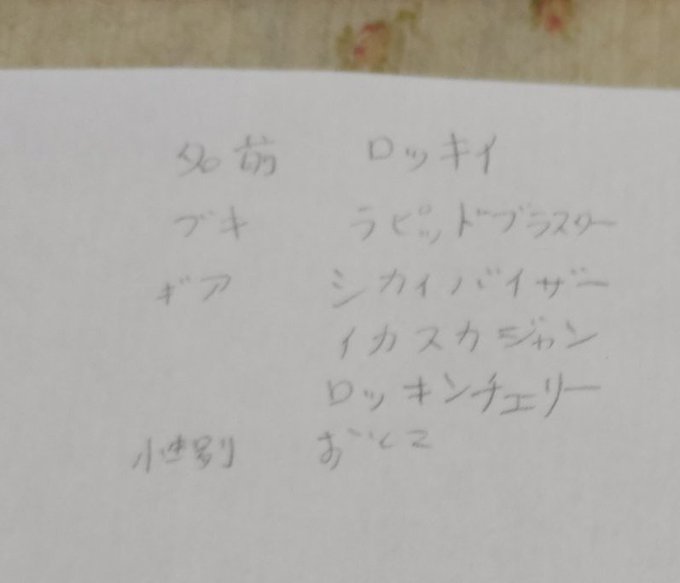 名前 ロッキイ
ブキ ラピッドブラスター
ギア シカイバイザー
イカスカジャン
ロッキンチェリー
性別